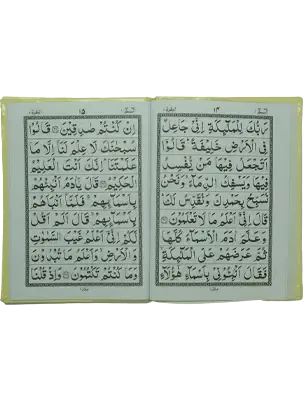 البقرة ٢
١٤
رَبُّكَ لِلْمَلٰٓئِكَةِ اِنِّیْ جَاعِلٌ
فِی الْاَرْضِ خَلِیْفَةً ؕ قَالُوْۤا
اَتَجْعَلُ فِیْهَا مَنْ یُّفْسِدُ
فِیْهَا وَیَسْفِكُ الدِّمَآءَ ۚ وَنَحْنُ
نُسَبِّحُ بِحَمْدِكَ وَنُقَدِّسُ لَكَ ؕ
قَالَ اِنِّیْۤ اَعْلَمُ مَا لَا تَعْلَمُوْنَ
وَعَلَّمَ اٰدَمَ الْاَسْمَآءَ كُلَّهَا
ثُمَّ عَرَضَهُمْ عَلَی الْمَلٰٓئِكَةِ
فَقَالَ اَنْۢبِـُٔوْنِیْ بِاَسْمَآءِ هٰۤؤُلَآءِ
١٥
اِنْ كُنْتُمْ صٰدِقِیْنَ قَالُوْا
سُبْحٰنَكَ لَا عِلْمَ لَنَاۤ اِلَّا مَا
عَلَّمْتَنَا ؕ اِنَّكَ اَنْتَ الْعَلِیْمُ
الْحَكِیْمُ قَالَ یٰۤاٰدَمُ اَنْۢبِئْهُمْ
بِاَسْمَآئِهِمْ ۚ فَلَمَّاۤ اَنْۢبَاَهُمْ
بِاَسْمَآئِهِمْ ۙ قَالَ اَلَمْ اَقُلْ
لَّكُمْ اِنِّیْۤ اَعْلَمُ غَیْبَ السَّمٰوٰتِ
وَالْاَرْضِ ۙ وَاَعْلَمُ مَا تُبْدُوْنَ
وَمَا كُنْتُمْ تَكْتُمُوْنَ وَاِذْ قُلْنَا